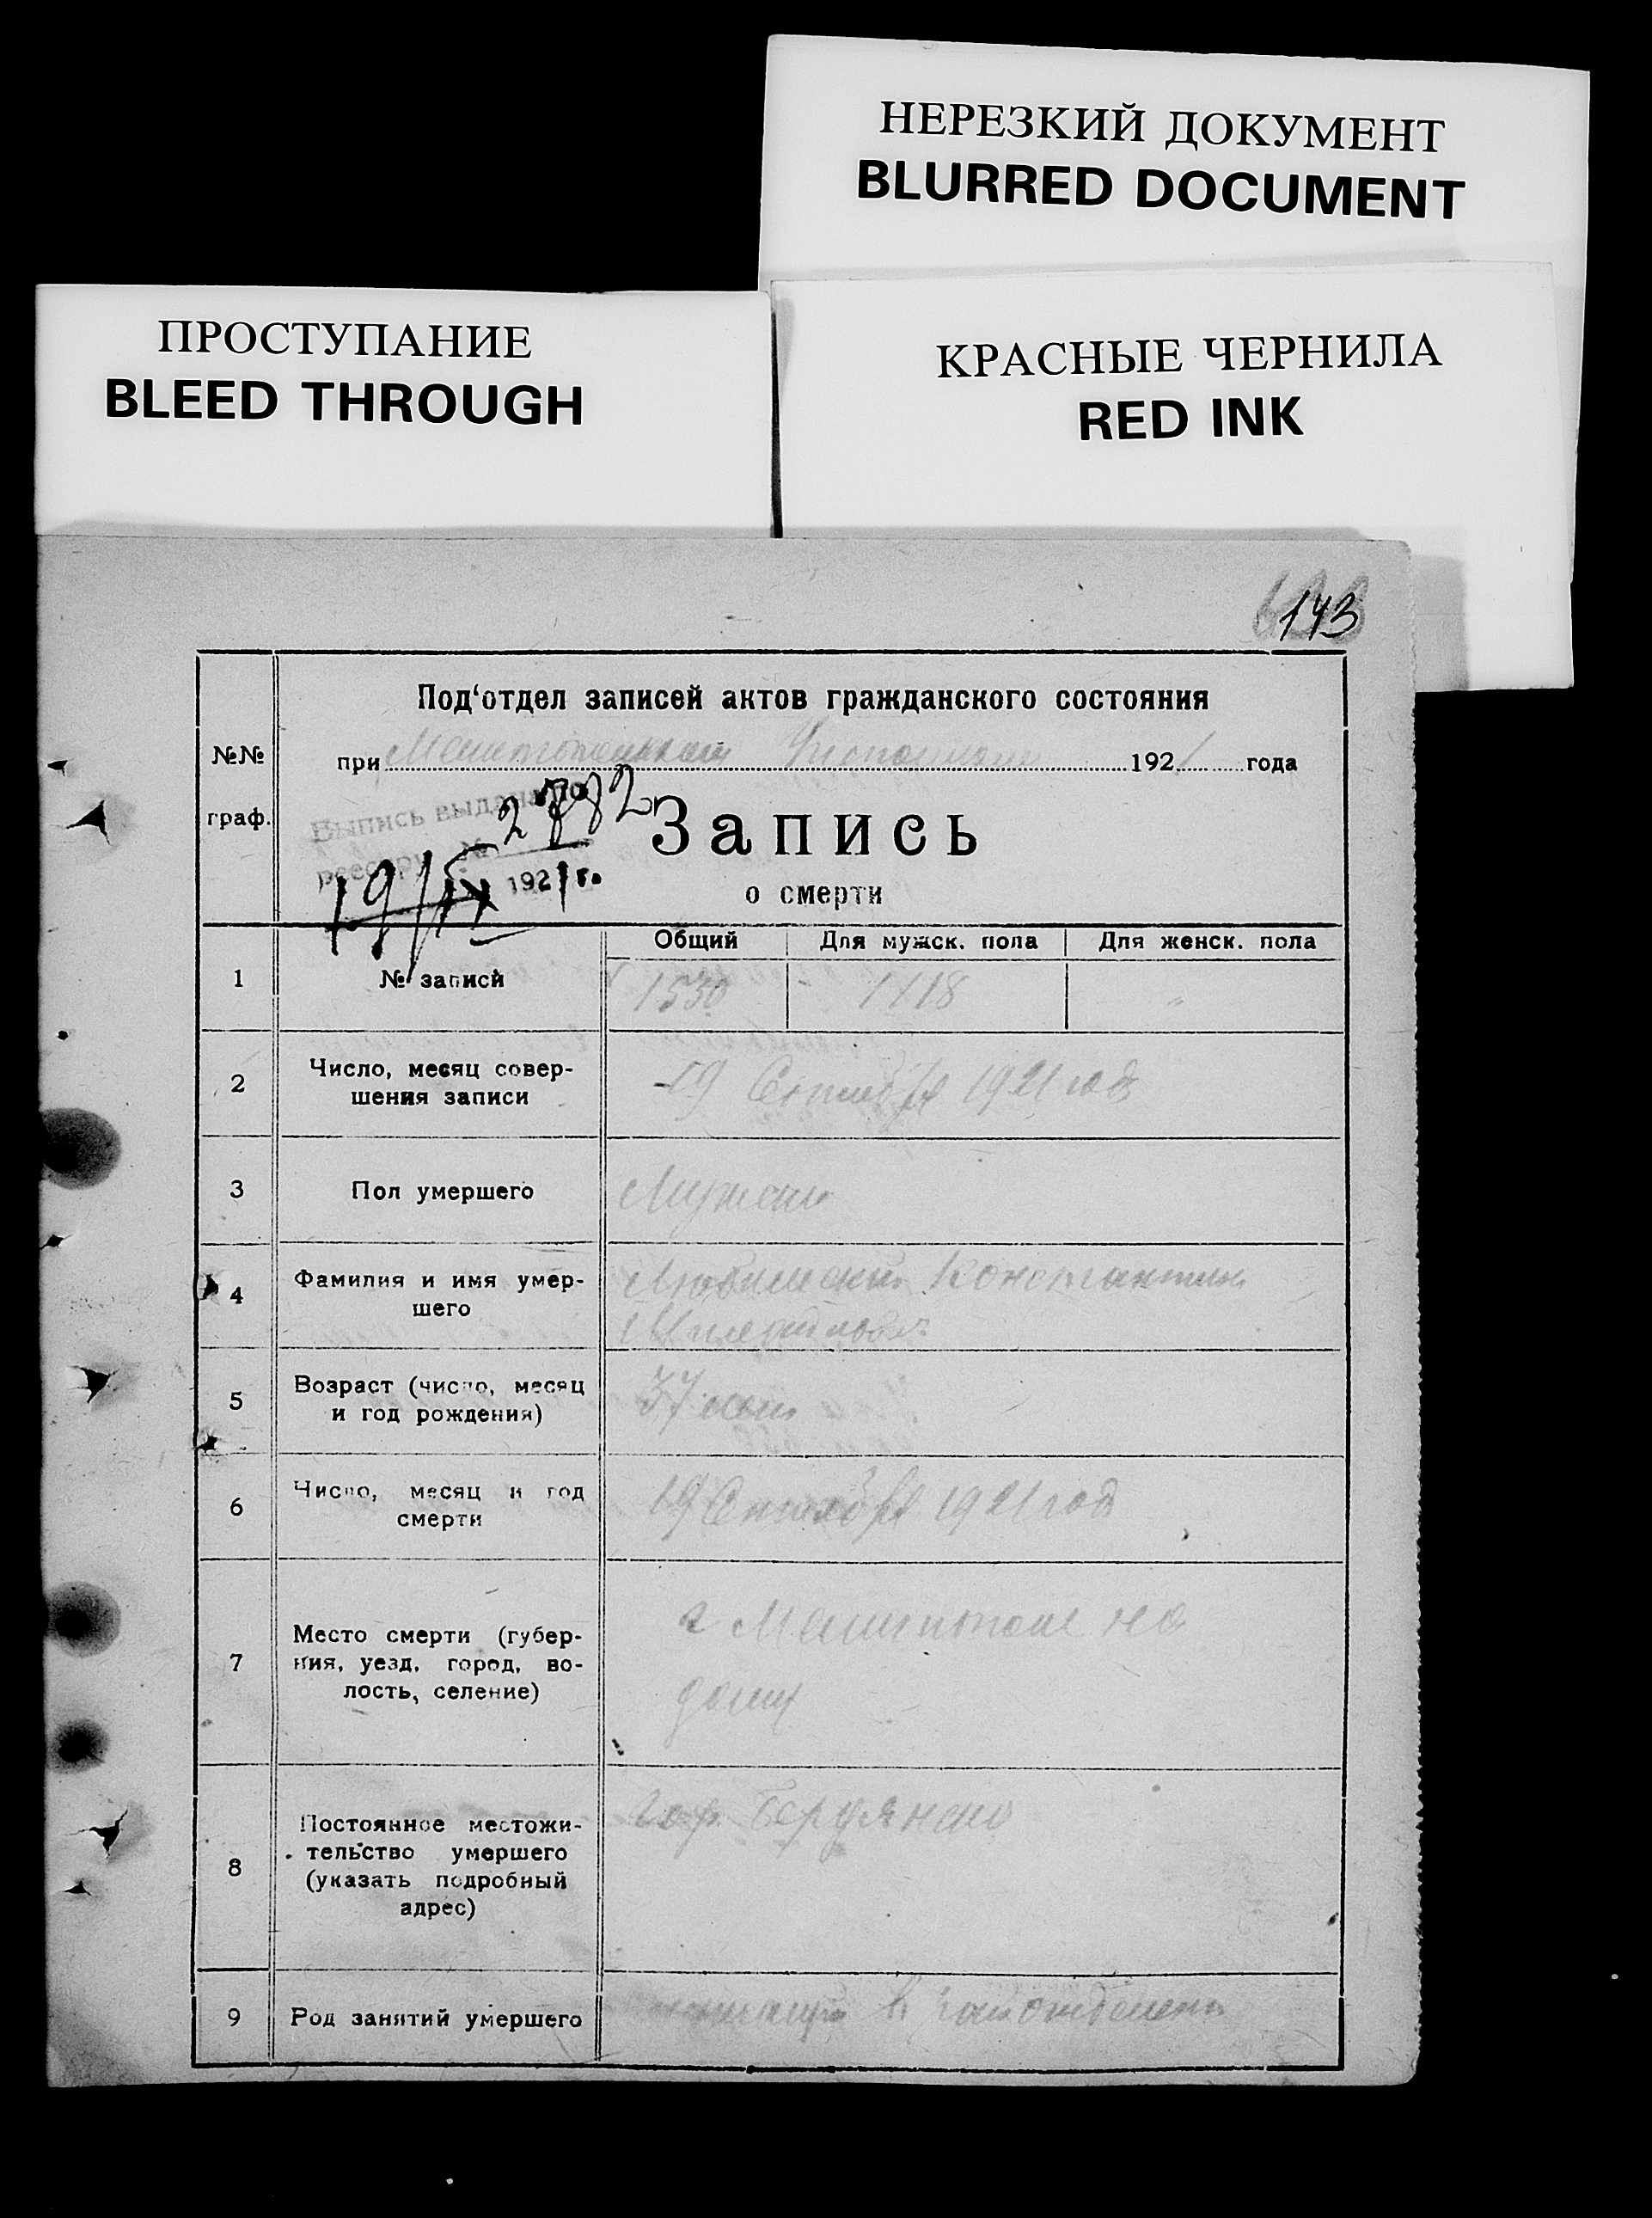 НЕРЕЗКИЙ ДОКУМЕНТ
BLURRED DOCUMENT
ПРОСТУПАНИЕ
BLEED THROUGH
КРАСНЫЕ ЧЕРНИЛА
RED INK
143
№№ граф.
Под‘отдел записей актов гражданского состояния
при 1921 года
Выпись выдана по
реестру № 2782
19/IX 1921 г.
Запись
о смерти
Общий Для мужск. пола Для женск. пола
1 № записи 1530 1118 "
2 Число, месяц совер-
шения записи
19 Сентября 1921 года
3 Пол умершего Мужской
4 Фамилия и имя умер-
шего
Константин
5 Возраст (число, месяц
и год рождения)
37 лет
6 Число, месяц и год
смерти
19 Сентября 1921 года
7 Место смерти (губер-
ния, уезд, город, во-
лость, селение)
г Мелитополь на
дому
8 Постоянное местожи-
тельство умершего
(указать подробный
адрес)
гор. Бердянск
9 Род занятий умершего